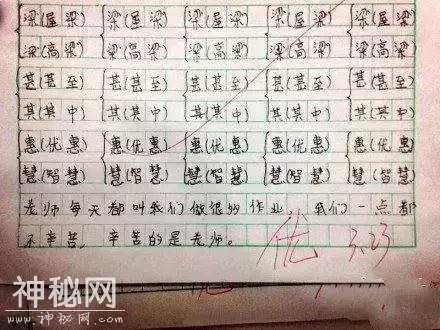 梁(屋梁) 梁(屋梁) 梁(屋梁) 梁(屋梁) 梁(屋梁)
粱(高粱) 粱(高粱) 粱(高粱) 粱(高粱) 粱(高粱)
甚(甚至) 甚(甚至) 甚(甚至) 甚(甚至) 甚(甚至)
其(其中) 其(其中) 其(其中) 其(其中) 其(其中)
惠(优惠) 惠(优惠) 惠(优惠) 惠(优惠) 惠(优惠)
慧(智慧) 慧(智慧) 慧(智慧) 慧(智慧) 慧(智慧)
老师每天都叫我们做很多作业,我们一点都
不辛苦,辛苦的是老师。 优 3.23
神秘网
WWW.SHENMIW.COM